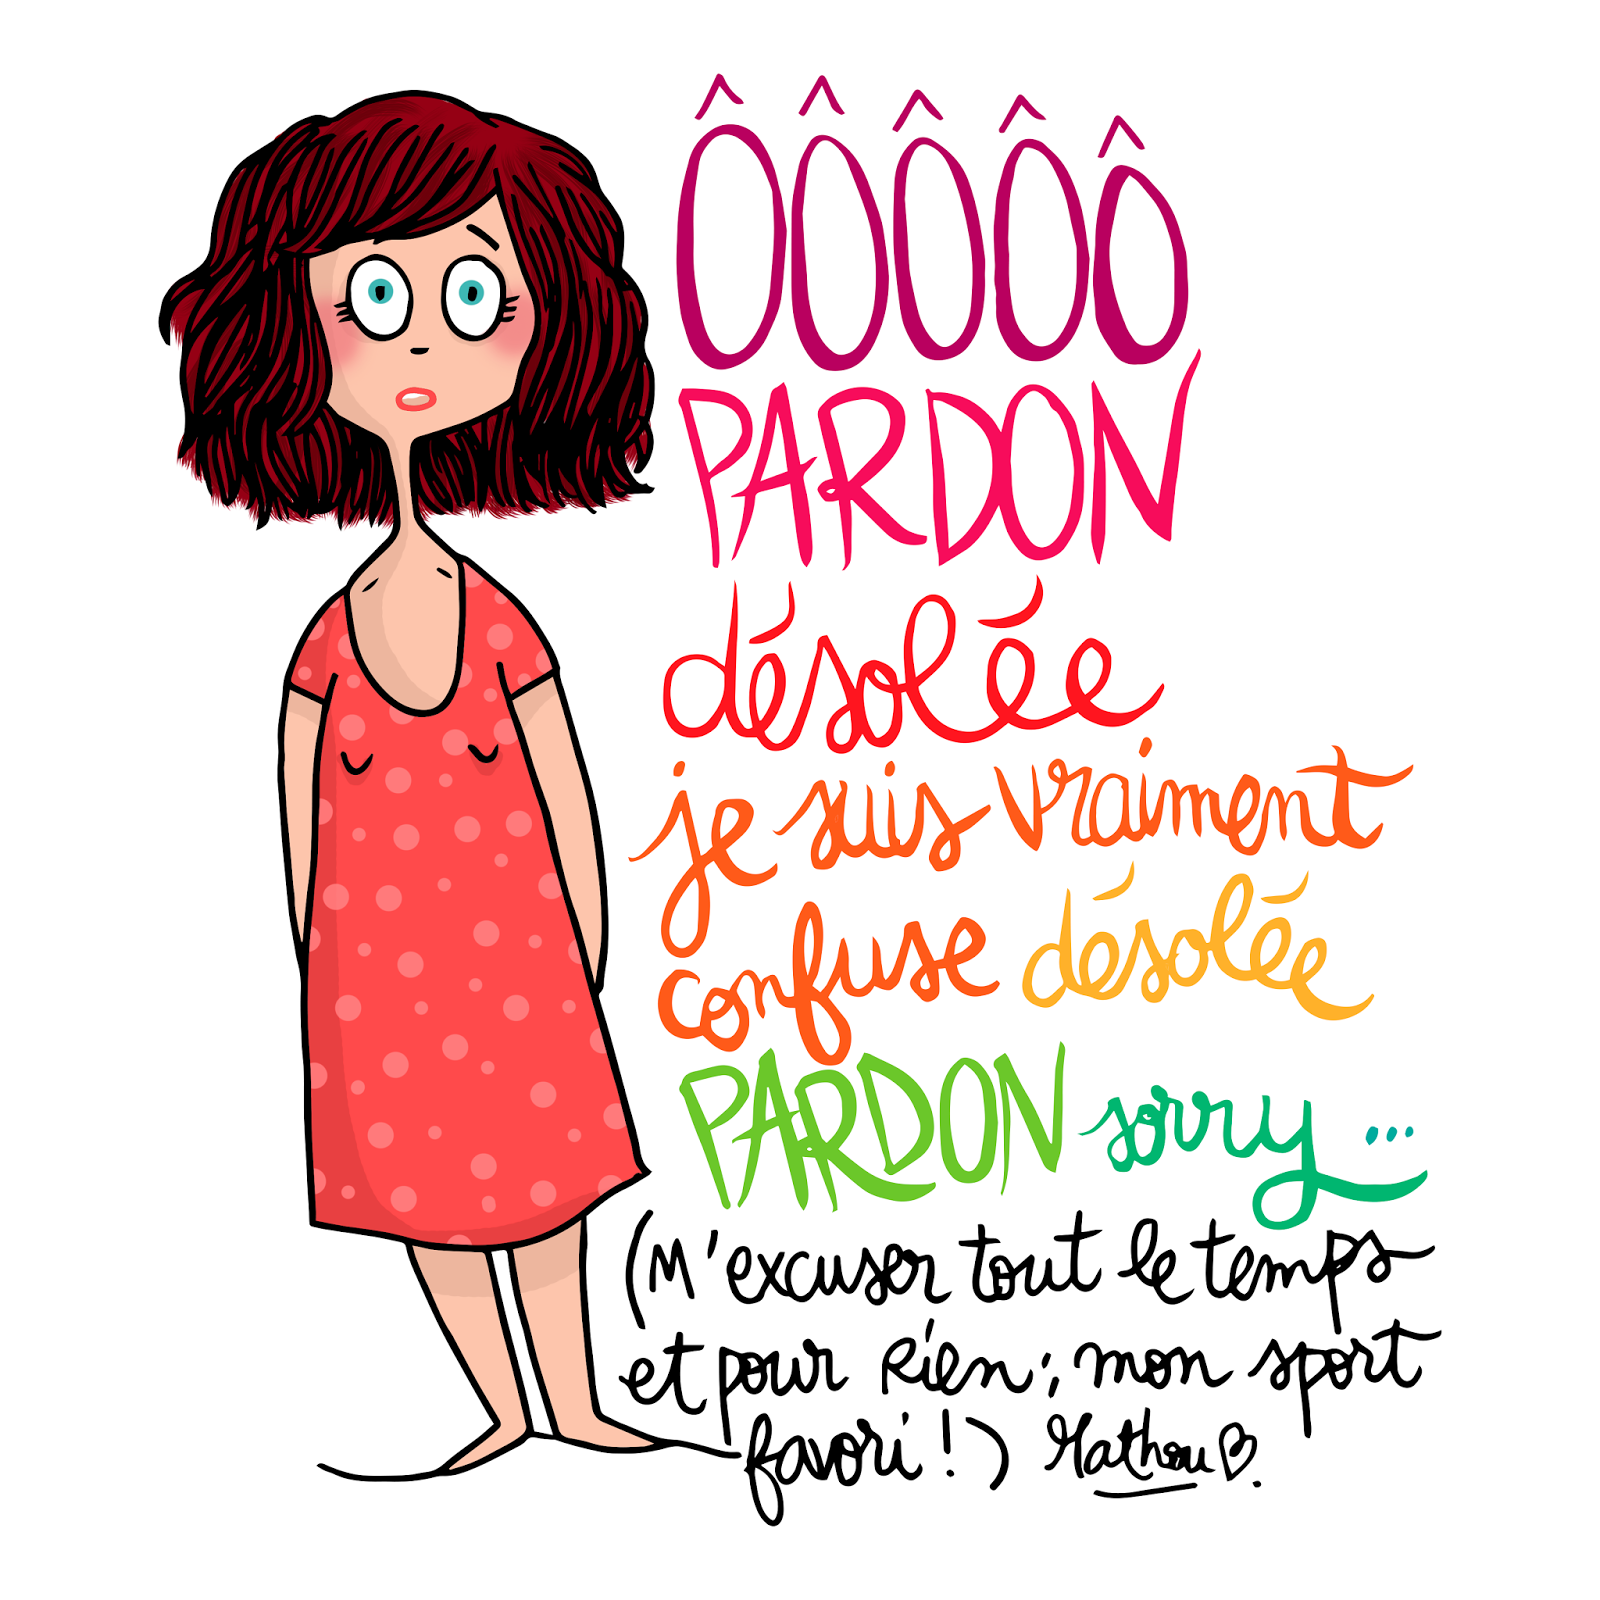 ÔÔÔÔÔ
PARDON
désolée
je suis vraiment
confuse désolée
PARDON sorry...
(M'excuser tout le temps
et pour rien ; mon sport
favori !) Mathou